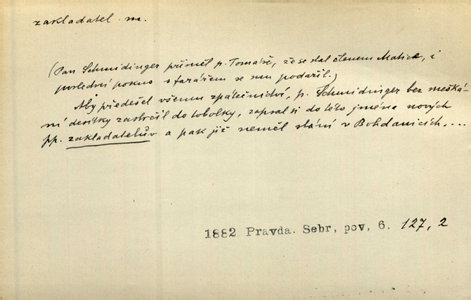 zakladatel m.
(Pan Schmidinger přiměl p. Tomáše, že se stal členem Matice, i
poslední pokus s farářem se mu podařil.)
Aby předešel všemu zpátečnictví, p. Schmidinger bez meškání
desítky zastrčil do tobolky, zapsal si do této jména nových
pp. zakladatelův a pak již neměl stání v Bohdanicích, ...
1882 Pravda. Sebr. pov. 6. 127, 2